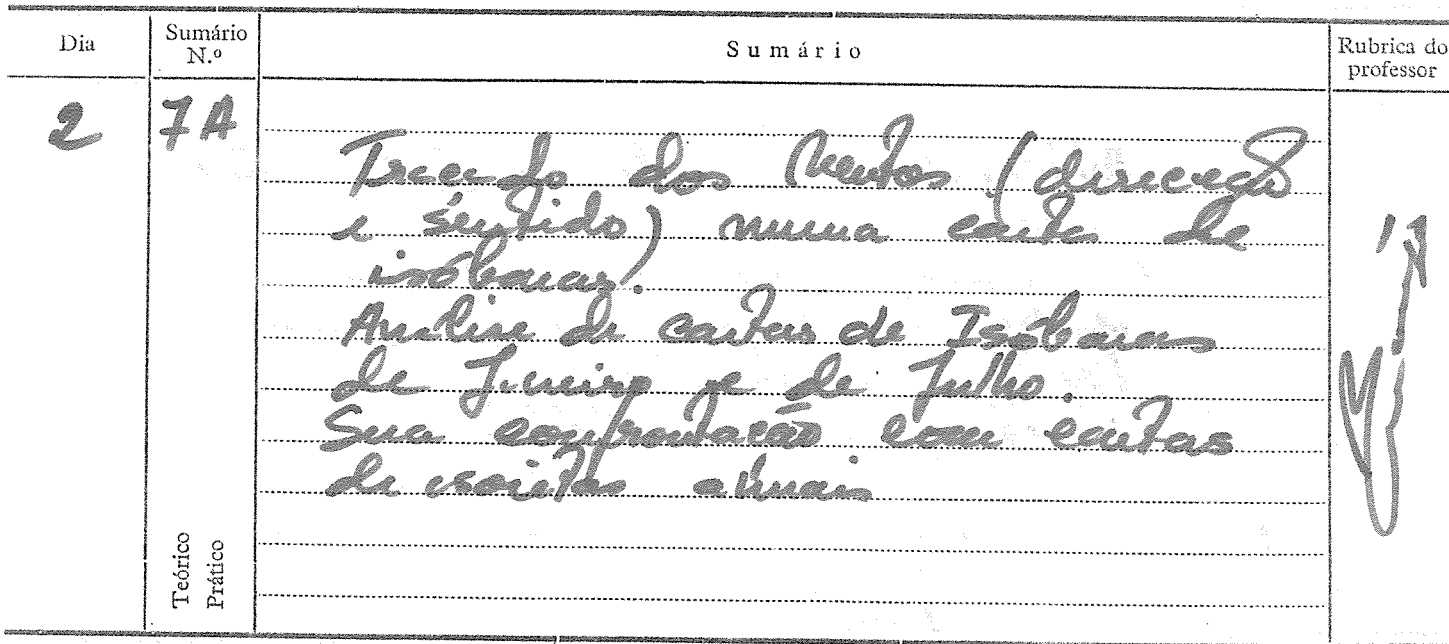 Dia
Sumário N.º
Sumário
Rubrica do professor
2
7A
Traçado dos Ventos (direcção
e sentido) numa carta de
isóbaras.
Análise de cartas de Isóbaras
de Janeiro e de Julho.
Sua confrontação com cartas
de isoietas anuais
Teórico
Prático